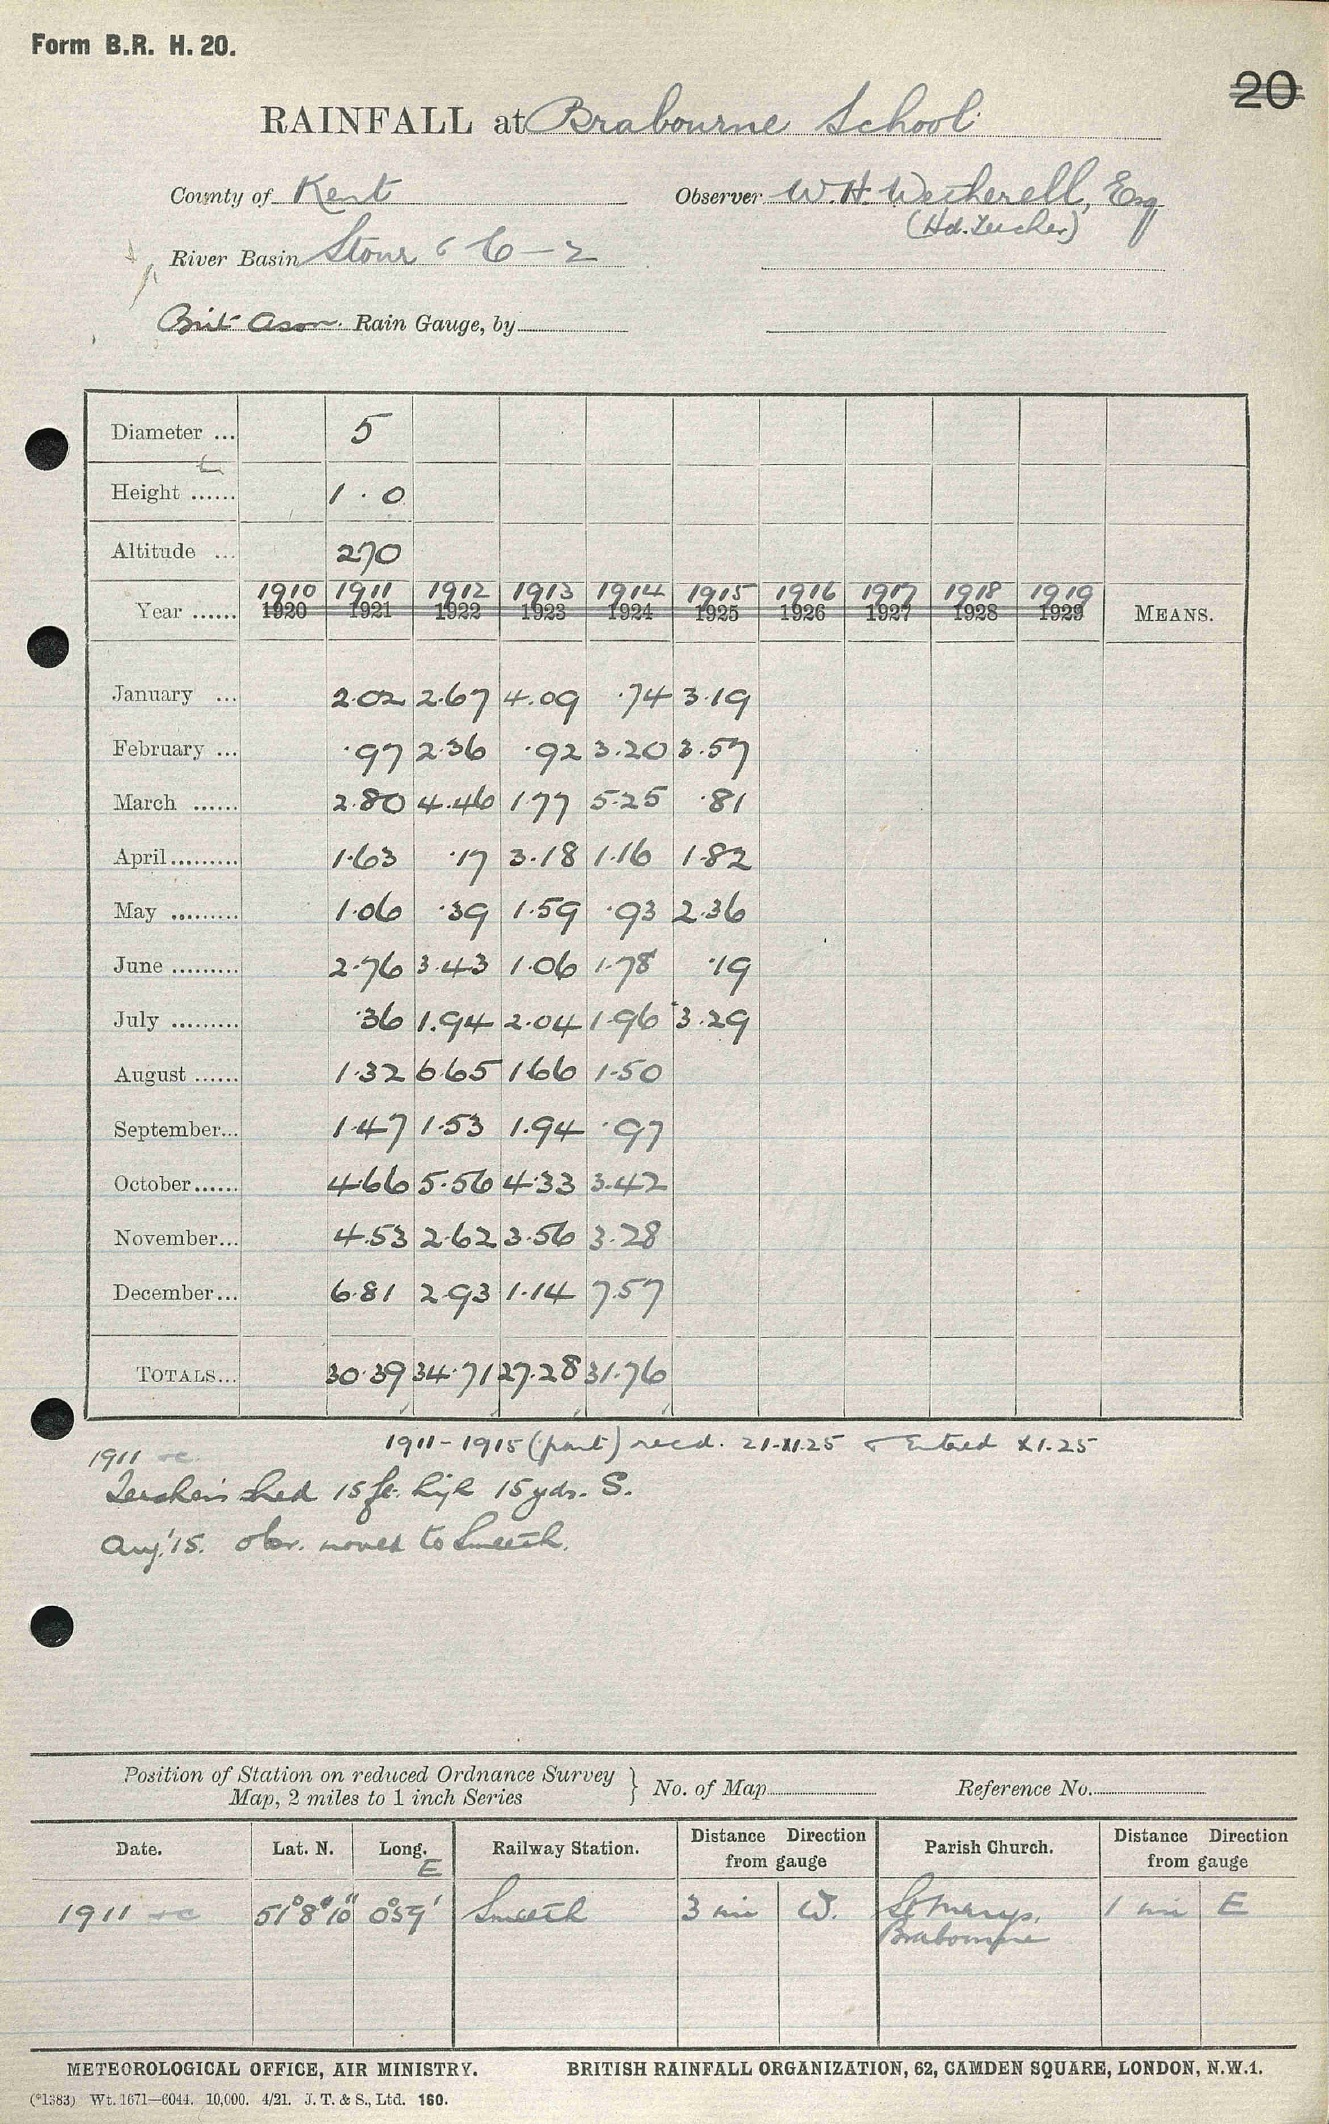 Form B.R. H. 20.
20
RAINFALL at Brabourne School
County of Kent Observer W. H. Wetherell, Esq
(Hd. Teacher)
River Basin Stour 6 C-2
Brit Assn. Rain Gauge, by
Diameter ... 5
Height ...... 1.0
Altitude ... 270
1910 1911 1912 1913 1914 1915 1916 1917 1918 1919
Year ...... 1920 1921 1922 1923 1924 1925 1926 1927 1928 1929 MEANS.
January ... 2.02 2.67 4.09 .74 3.19
February ... .97 2.36 .92 3.20 3.57
March ...... 2.80 4.46 1.77 5.25 .81
April ......... 1.63 .17 3.18 1.16 1.82
May ......... 1.06 .39 1.59 .93 2.36
June ......... 2.76 3.43 1.06 1.78 .19
July ......... .36 1.94 2.04 1.96 3.29
August ...... 1.32 6.65 1.66 1.50
September... 1.47 1.53 1.94 .97
October...... 4.66 5.56 4.33 3.42
November... 4.53 2.62 3.56 3.28
December... 6.81 2.93 1.14 7.57
TOTALS... 30.39 34.71 27.28 31.76
1911-1915 (part) recd. 21.XI.25 Entered XI.25
1911
Teacher's shed 15 ft. high 15 yds. S.
Aug. '15. obsr. moved to Smeeth.
Position of Station on reduced Ordnance Survey
Map, 2 miles to 1 inch Series } No. of Map Reference No.
Date. Lat. N. Long. E Railway Station. Distance Direction from gauge Parish Church. Distance Direction from gauge
1911 51° 8' 10" 0° 59' Smeeth 3 mi W. St Marys, 1 mi E
Brabourne
METEOROLOGICAL OFFICE, AIR MINISTRY. BRITISH RAINFALL ORGANIZATION, 62, CAMDEN SQUARE, LONDON, N.W.1.
(*1383) Wt. 1671—6044. 10,000. 4/21. J. T. & S., Ltd. 160.